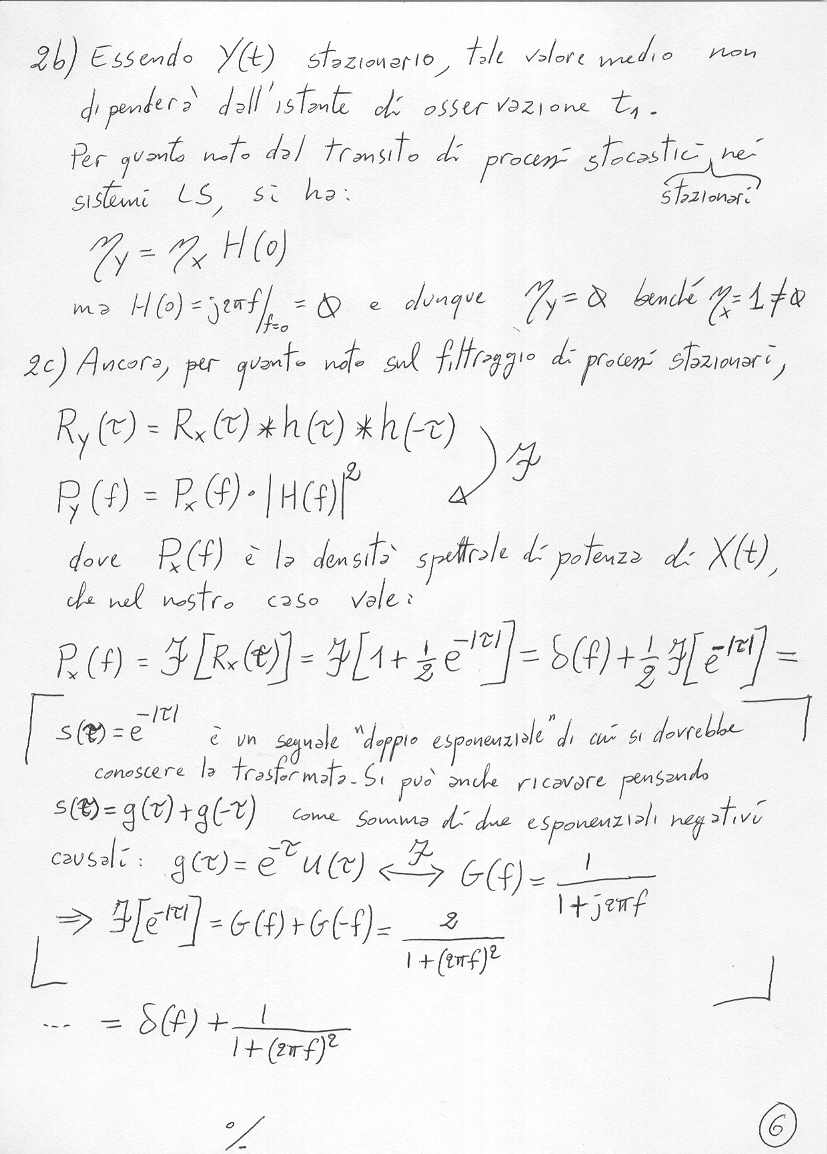 2b) Essendo Y(t) stazionario, tale valore medio non
dipenderà dall'istante di osservazione t₁.
Per quanto noto dal transito di processi stocastici nei
stazionari
sistemi LS, si ha:
η_y = η_x H(0)
ma H(0) = j2πf|_{f=0} = 0 e dunque η_y = 0 benché η_x = 1 ≠ 0
2c) Ancora, per quanto noto sul filtraggio di processi stazionari,
R_y(τ) = R_x(τ) * h(τ) * h(-τ)
ℱ
P_y(f) = P_x(f) · |H(f)|²
dove P_x(f) è la densità spettrale di potenza di X(t),
che nel nostro caso vale:
P_x(f) = ℱ[R_x(τ)] = ℱ[1 + 1/2 e^{-|τ|}] = δ(f) + 1/2 ℱ[e^{-|τ|}] =
s(τ) = e^{-|τ|} è un segnale "doppio esponenziale" di cui si dovrebbe
conoscere la trasformata. Si può anche ricavare pensando
s(τ) = g(τ) + g(-τ) come somma di due esponenziali negativi
causali: g(τ) = e^{-τ} u(τ) ⟷^ℱ G(f) = 1/(1 + j2πf)
⇒ ℱ[e^{-|τ|}] = G(f) + G(-f) = 2/(1 + (2πf)²)
... = δ(f) + 1/(1 + (2πf)²)
%
6